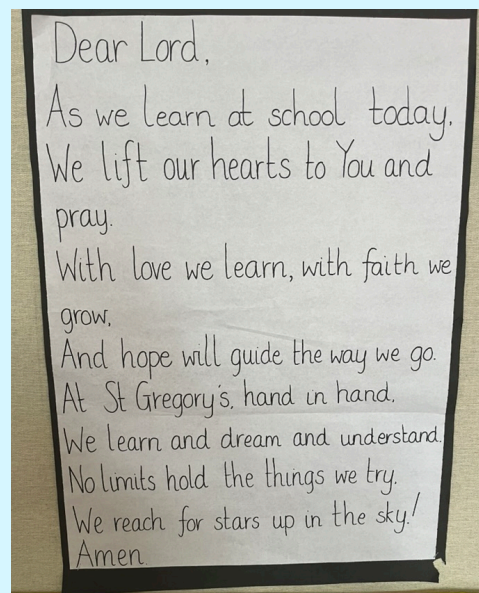 Dear Lord,
As we learn at school today.
We lift our hearts to You and
pray.
With love we learn, with faith we
grow,
And hope will guide the way we go.
At St Gregory's, hand in hand,
We learn and dream and understand.
No limits hold the things we try.
We reach for stars up in the sky!
Amen.